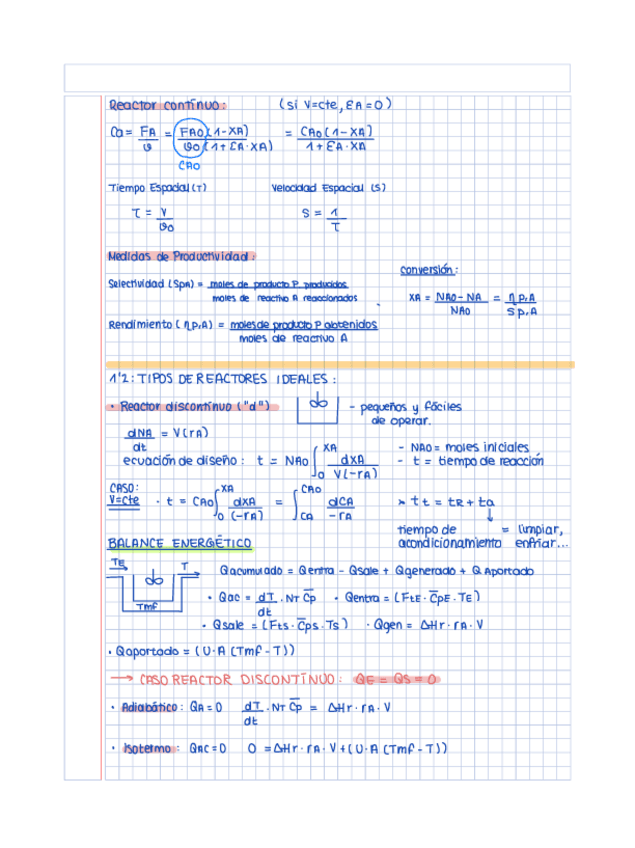 Reactor contínuo: (si V=cte, εA=0)
Ca = FA/ϑ = FA0(1-XA)/ϑ0(1+εA·XA) = CA0(1-XA)/1+εA·XA
CA0
Tiempo Espacial (τ) Velocidad Espacial (S)
τ = V/ϑ0 S = 1/τ
Medidas de Productividad:
conversión:
Selectividad (SpA) = moles de producto P producidos/moles de reactivo A reaccionados
XA = NA0-NA/NA0 = ηP,A/SP,A
Rendimiento (ηP,A) = moles de producto P obtenidos/moles de reactivo A
1'2: TIPOS DE REACTORES IDEALES:
· Reactor discontínuo ("d") - pequeños y fáciles
de operar.
dNA/dt = V(rA)
ecuación de diseño: t = NA0 ∫0^XA dXA/V(-rA)
- NA0 = moles iniciales
- t = tiempo de reacción
CASO:
V=cte · t = CA0 ∫0^XA dXA/(-rA) = ∫CA^CA0 dCA/-rA
* tt = tR + ta
↓
tiempo de = limpiar,
acondicionamiento enfriar...
BALANCE ENERGÉTICO
TE T
Tmf
Qacumulado = Qentra - Qsale + Qgenerado + Q Aportado
· Qac = dT/dt · NT C̅p · Qentra = (FtE · C̅pE · TE)
· Qsale = (Fts · C̅ps · Ts) · Qgen = ΔHr · rA · V
· Qaportado = (U·A (Tmf - T))
→ CASO REACTOR DISCONTÍNUO: QE = QS = 0
· Adiabático: QA = 0 dT/dt · NT C̅p = ΔHr · rA · V
· Isotermo: QAC = 0 0 = ΔHr · rA · V + (U·A (Tmf - T))